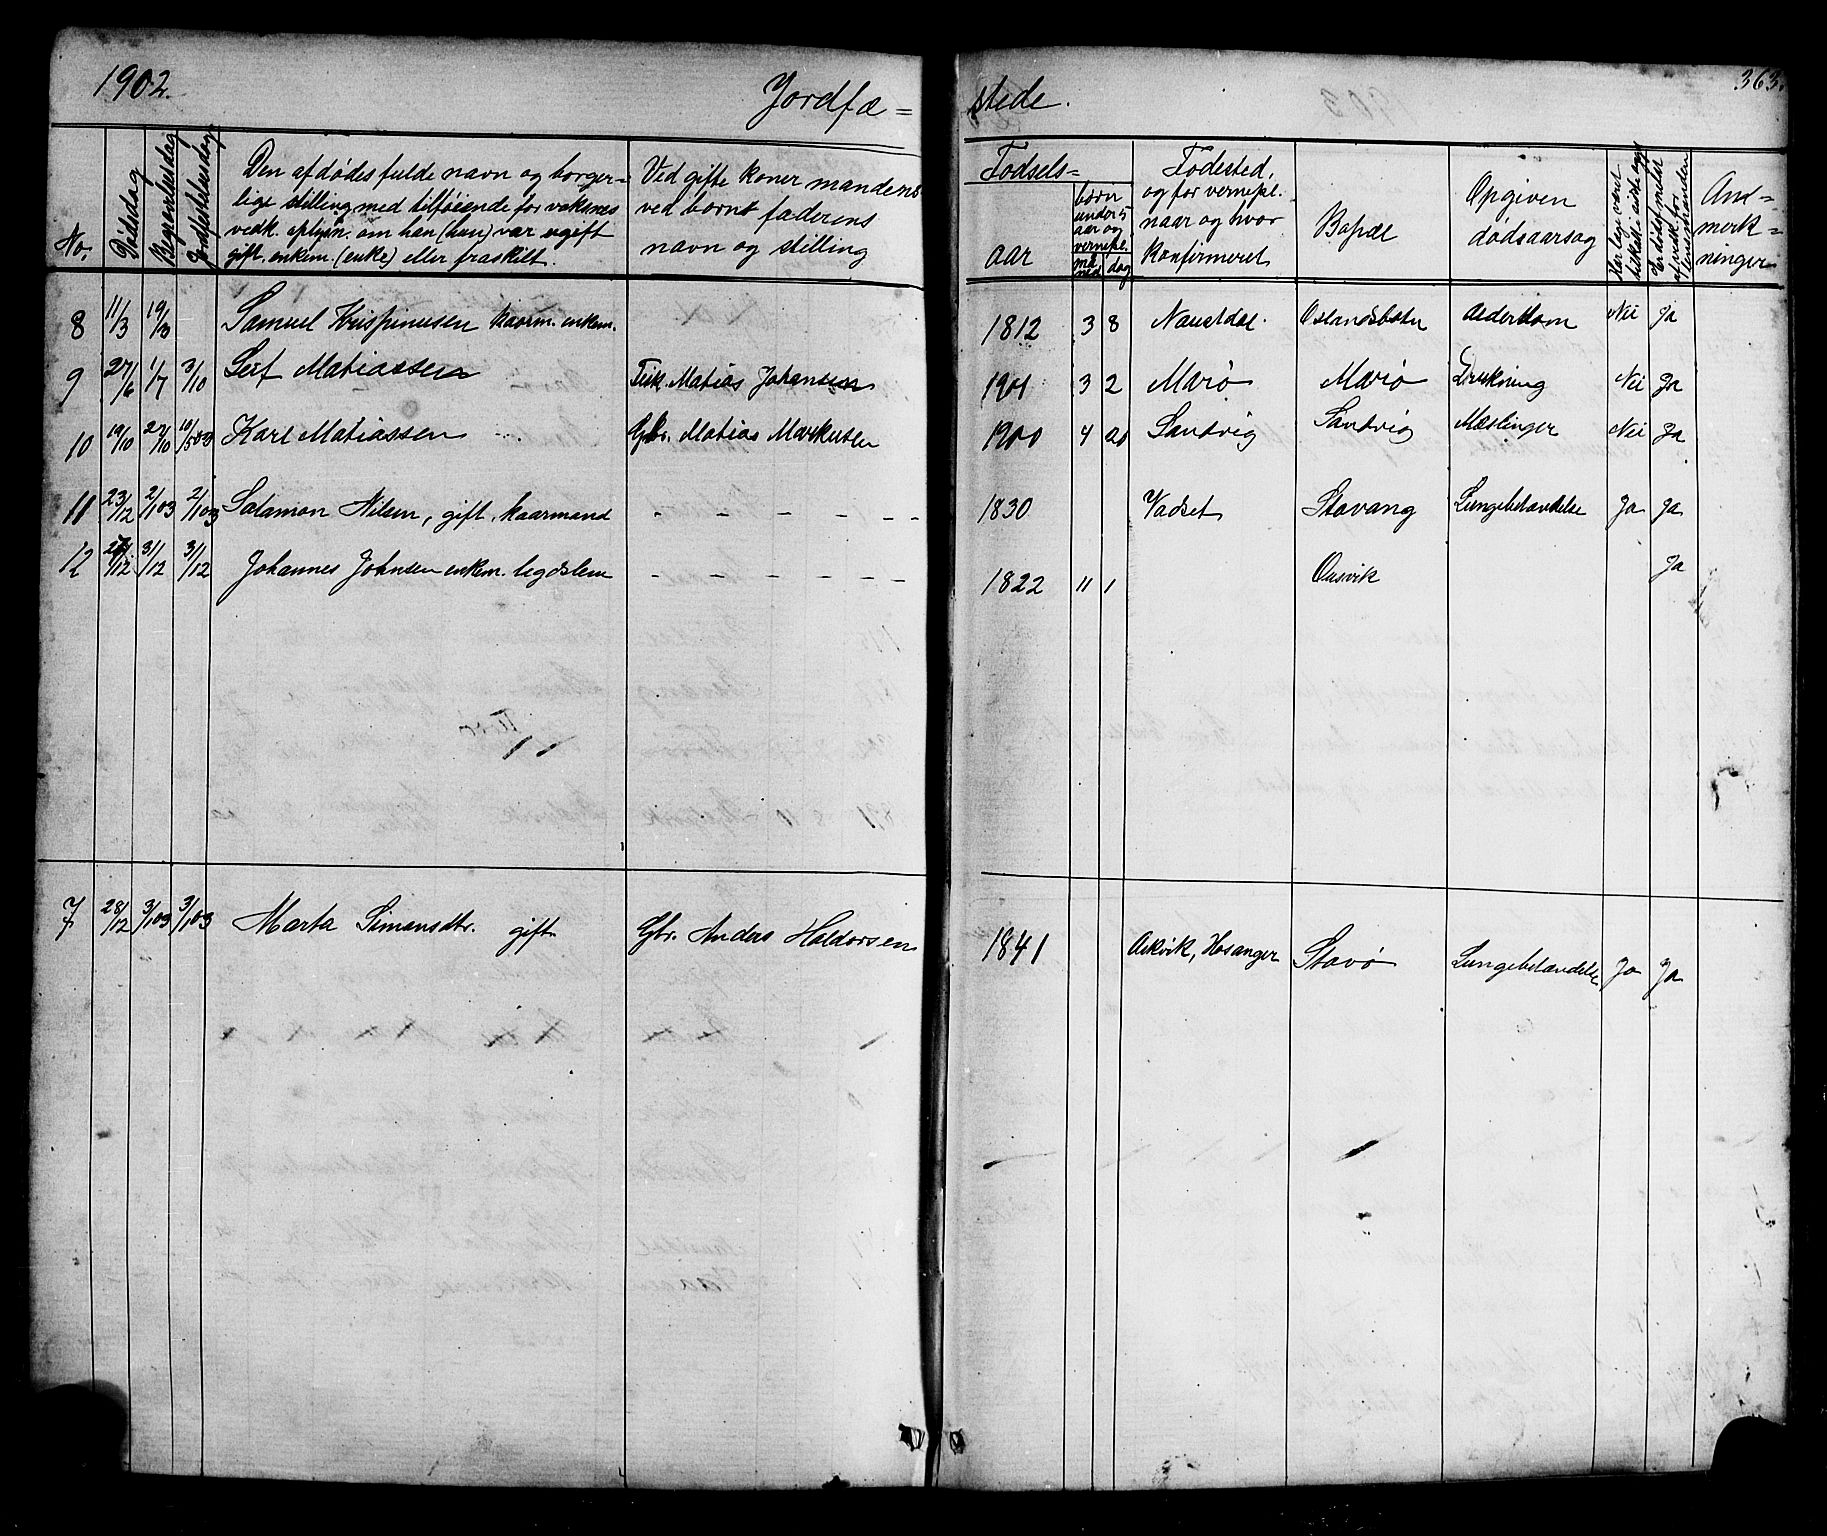 1902. Jordfæ = stede. 363.
No. Dödsdag Begravelsesdag Jordfæstelsesdag Den afdödes fulde navn og borger-
lige stilling med tilföiende for voksnes
vedk. oplysn. om han (hun) var ugift
gift, enkem. (enke) eller fraskilt.
Ved gifte koner mandens
ved börn faderens
navn og stilling
Födsels=
aar
börn
under 5
aar og
vernepl.
maaned dag
Födested,
og for vernepl.
naar og hvor
konfirmeret
Bopæl
Opgiven
dødsaarsag
An=
merk=
ninger
8 11/3 19/3 Samuel Krispinusen kaarm. enkem. 1812 3 8 Naustdal. Oslandsbotn Alderdom Nei Ja
9 27/6 1/7 3/10 Leif Matiassen Fisk. Matias Johansen 1901 3 2 Marö Marö Drukning Nei Ja
10 19/10 27/10 10/5 03 Karl Matiassen Gbr. Matias Markusen 1900 4 20 Sandvig Sandvig Mæslinger Nei Ja
11 23/12 2/1 03 2/1 03 Salamon Nilsen, gift, kaarmand - - - - - - 1830 Vadset Stavang Lungebetændelse Ja Ja
12 31/12 31/12 Johannes Johnsen enkem. legdslem - - - - - - 1822 11 1 Ausvik Ja
7 28/12 3/1 03 3/1 03 Marta Simonsdtr. gift Gbr. Anders Haldorsen 1841 Askvik, Hosanger Stavö Lungebetændelse Ja Ja